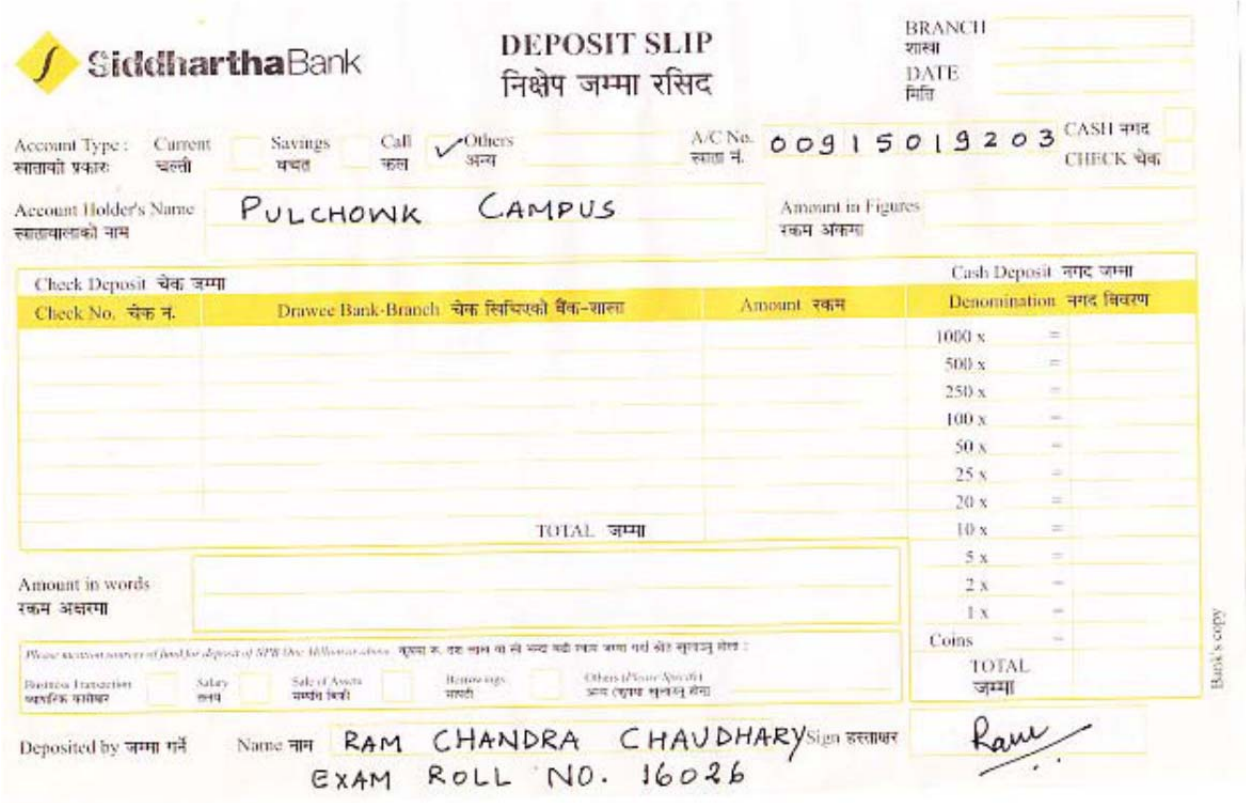 SiddharthaBank
DEPOSIT SLIP
निक्षेप जम्मा रसिद
BRANCH
शाखा
DATE
मिति
Account Type : Current Savings Call ✓ Others
खाताको प्रकारः चल्ती बचत कल अन्य
A/C No. 00915019203
खाता नं.
CASH नगद
CHECK चेक
Account Holder's Name PULCHOWK CAMPUS
खातावालाको नाम
Amount in Figures
रकम अंकमा
Check Deposit चेक जम्मा
Cash Deposit नगद जम्मा
Check No. चेक नं. Drawee Bank-Branch चेक खिचिएको बैंक-शाखा Amount रकम Denomination नगद विवरण
1000 x =
500 x =
250 x =
100 x =
50 x =
25 x =
20 x =
TOTAL जम्मा 10 x =
5 x =
2 x =
1 x =
Coins =
TOTAL
जम्मा
Amount in words
रकम अक्षरमा
Please mention sources of fund for deposit of NPR One Million or above
Business Transaction Salary Sale of Assets Borrowings Others (Please Specify)
तलब सम्पत्ति बिक्री सापटी
Deposited by जम्मा गर्ने Name नाम RAM CHANDRA CHAUDHARY Sign हस्ताक्षर Ram
EXAM ROLL NO. 16026
Bank's copy